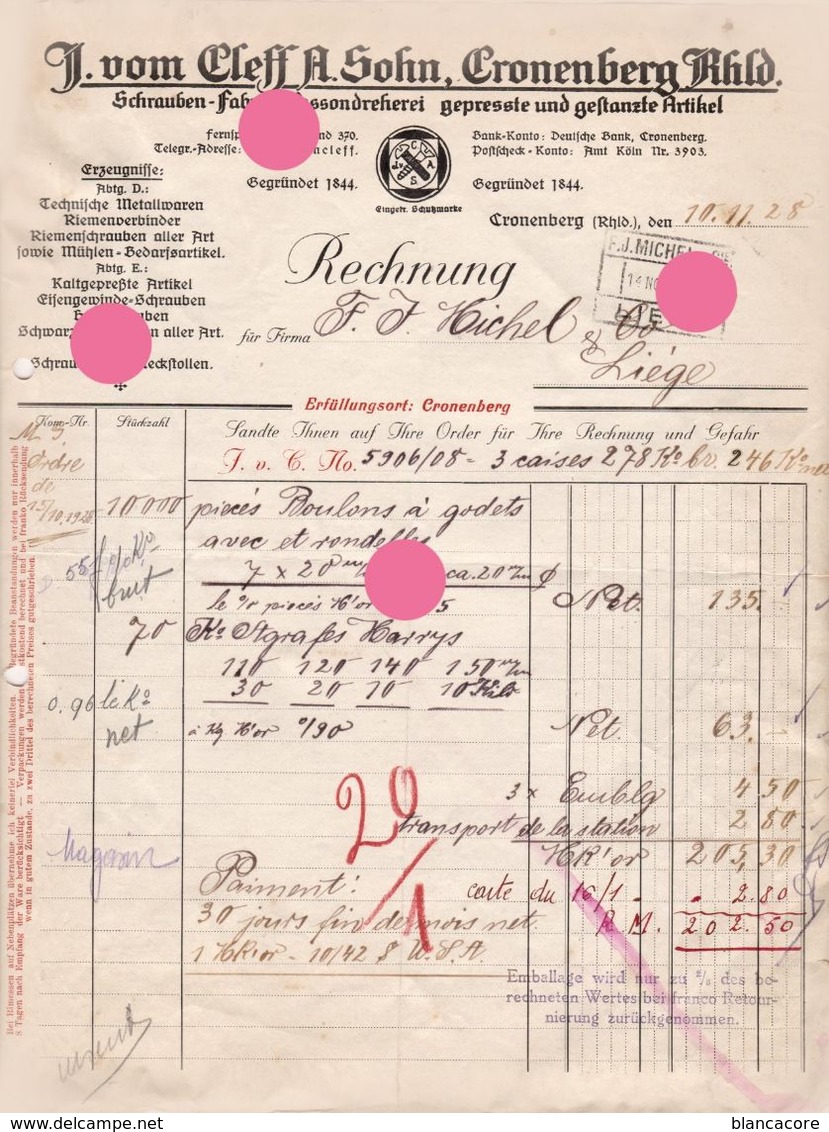 J. vom Cleff A. Sohn, Cronenberg Rhld.
Schrauben-Fab ssondreherei gepresste und gestanzte Artikel
Fernsp nd 370.
Telegr.-Adresse: ncleff.
Bank-Konto: Deutsche Bank, Cronenberg.
Postscheck-Konto: Amt Köln Nr. 3903.
Gegründet 1844.
Gegründet 1844.
C A S
Eingetr. Schutzmarke
Erzeugnisse:
Abtg. D.:
Technische Metallwaren
Riemenverbinder
Riemenschrauben aller Art
sowie Mühlen-Bedarfsartikel.
Abtg. E.:
Kaltgepreßte Artikel
Eisengewinde-Schrauben
uben
Schwarz n aller Art.
Schrau eckstollen.
Cronenberg (Rhld.), den 10.11.28
F.J. MICHEL
14 NO
LIE
Rechnung
für Firma F. J. Michel & Co
Liége
Erfüllungsort: Cronenberg
Kom-Nr. Stückzahl
Sandte Ihnen auf Ihre Order für Ihre Rechnung und Gefahr
J. v. C. No. 5906/08 - 3 caises 278 Ko br 246 Ko net
Ordre
de
15/10.1928
10000 pieces Boulons à godets
avec et rondelles
7 x 20 m/ ca. 20 m/m ϕ
55 % Ko
brut
le % pieces M'or 5 Net. 135.-
70 Ko Agrafes Harrys
110 120 140 150 m/m
30 20 10 10 Kilo
0.96 le Ko
net
à Kg M'or 0/90 Net. 63.-
3 x Emblg 4 50
transport de la station 2 80
MR'or 205,30
29/1
Magasin
Paiment:
30 jours fin de mois net.
1 MR'or - 10/42 $ U.S.A.
carte du 16/1. - 2.80
R.M. 202.50
Emballage wird nur zu 2/3 des be-
rechneten Wertes bei franco Retour-
nierung zurückgenommen.
Bei Rimessen auf Nebenplätzen übernehme ich keinerlei Verbindlichkeiten. Begründete Beanstandungen werden nur innerhalb
8 Tagen nach Empfang der Ware berücksichtigt — Verpackungen werden stkostend berechnet und bei franko Rücksendung
wenn in gutem Zustande, zu zwei Drittel des berechneten Preises gutgeschrieben.
blancacore